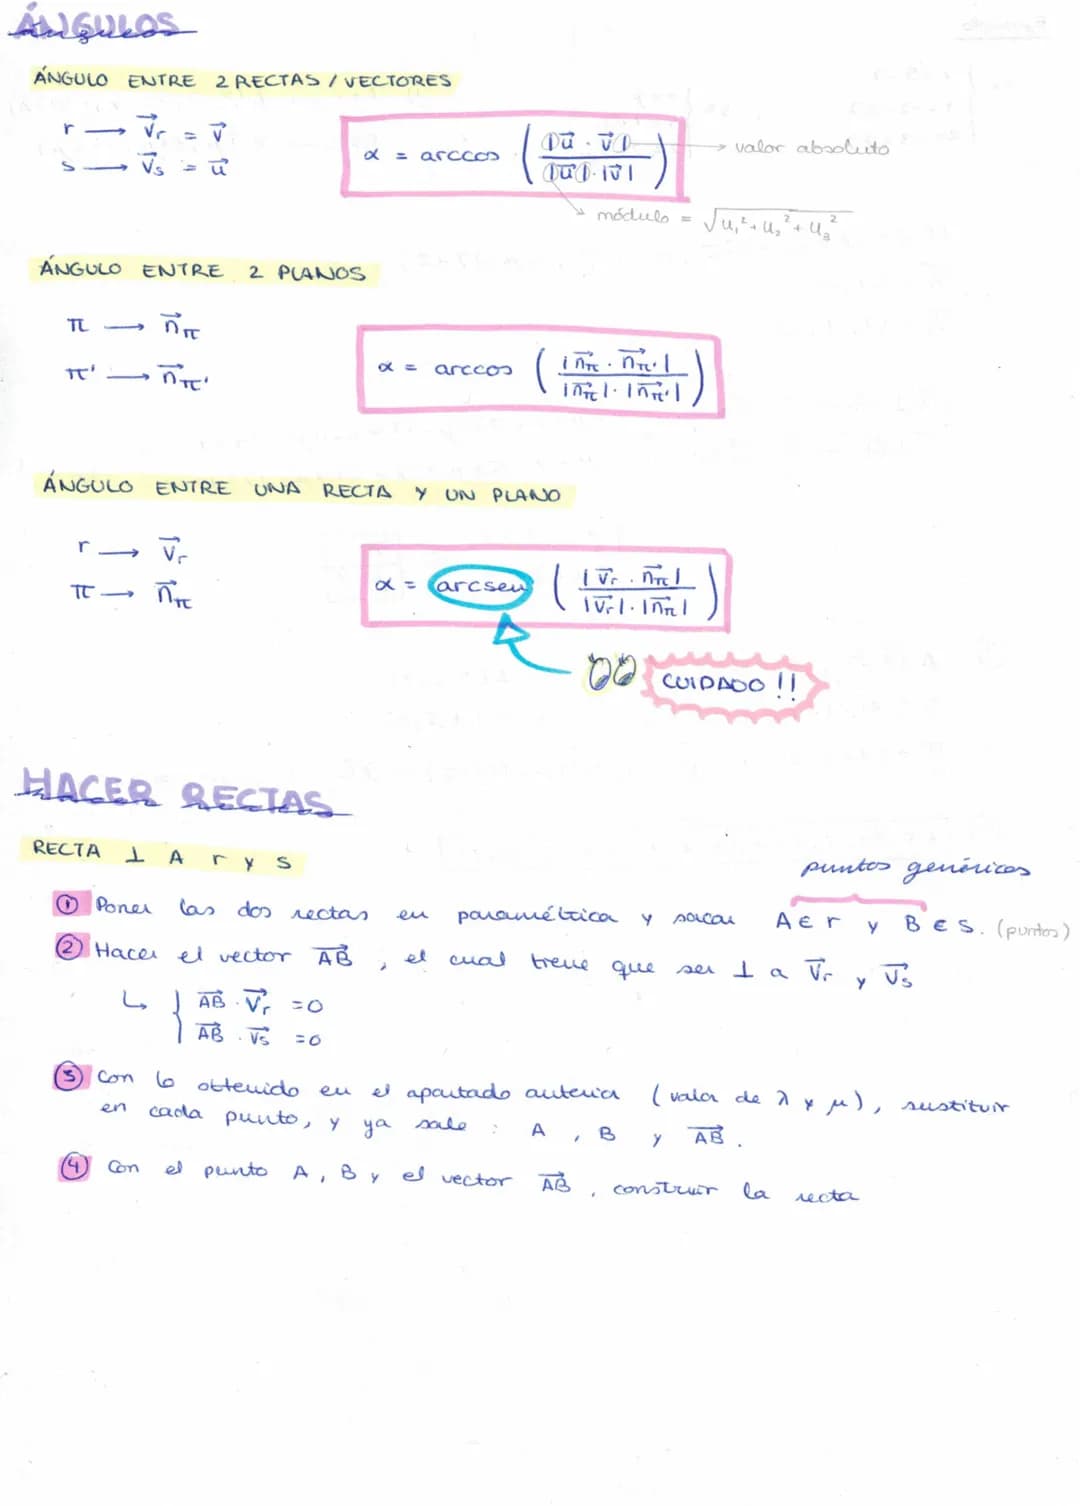 ÁNGULOS
ángulos
ÁNGULO ENTRE 2 RECTAS / VECTORES
r → v⃗r = v⃗
s → v⃗s = u⃗
α = arccos ( |u⃗ · v⃗| / |u⃗| · |v⃗| ) → valor absoluto
módulo = √u₁² + u₂² + u₃²
ÁNGULO ENTRE 2 PLANOS
π → n⃗π
π' → n⃗π'
α = arccos ( |n⃗π · n⃗π'| / |n⃗π| · |n⃗π'| )
ÁNGULO ENTRE UNA RECTA Y UN PLANO
r → v⃗r
π → n⃗π
α = arcsen ( |v⃗r · n⃗π| / |v⃗r| · |n⃗π| )
CUIDADO !!
HACER RECTAS
hacer rectas
RECTA ⊥ A r y s
puntos genéricos
① Poner las dos rectas en paramétrica y sacar A ∈ r y B ∈ s. (puntos)
② Hacer el vector AB⃗, el cual tiene que ser ⊥ a v⃗r y v⃗s
↳ { AB⃗ · v⃗r = 0
AB⃗ · v⃗s = 0
③ Con lo obtenido en el apartado anterior (valor de λ y μ), sustituir
en cada punto, y ya sale : A , B y AB⃗.
④ Con el punto A, B y el vector AB⃗, construir la recta